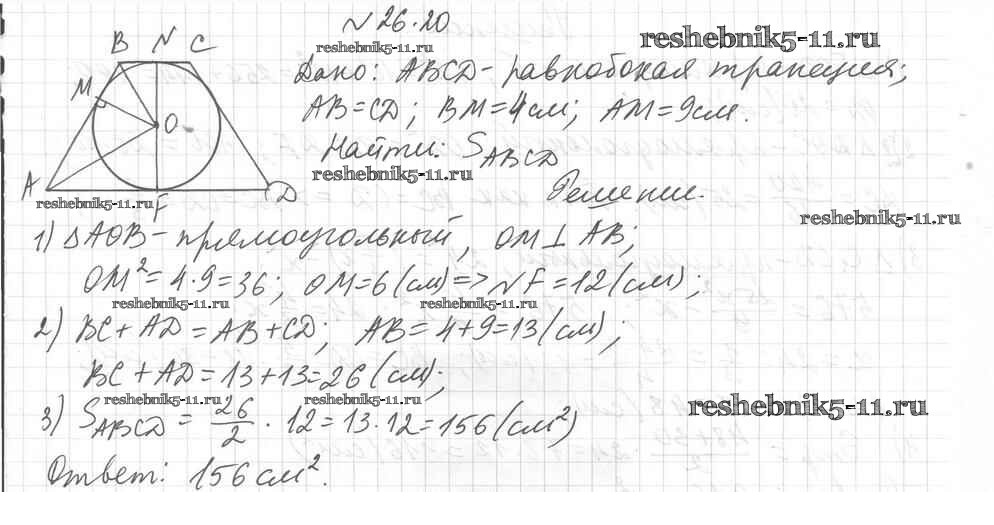 № 26.20
reshebnik5-11.ru
reshebnik5-11.ru
B N C
M
O
A
D
F
Дано: ABCD - равнобокая трапеция;
AB = CD; BM = 4 см; AM = 9 см.
Найти: S_ABCD
reshebnik5-11.ru
Решение.
reshebnik5-11.ru
reshebnik5-11.ru
1) △AOB - прямоугольный, OM ⊥ AB;
OM² = 4·9 = 36; OM = 6 (см) => NF = 12 (см);
reshebnik5-11.ru
reshebnik5-11.ru
2) BC + AD = AB + CD; AB = 4 + 9 = 13 (см);
BC + AD = 13 + 13 = 26 (см);
reshebnik5-11.ru
reshebnik5-11.ru
reshebnik5-11.ru
3) S_ABCD = 26/2 · 12 = 13·12 = 156 (см²)
Ответ: 156 см².